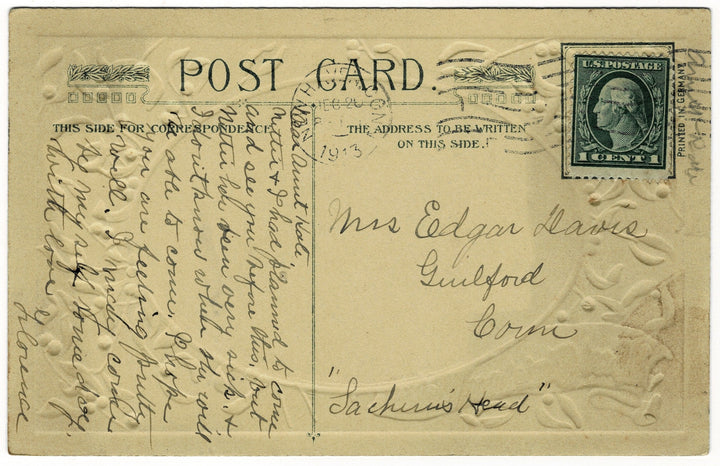 POST CARD.
THIS SIDE FOR CORRESPONDENCE
THE ADDRESS TO BE WRITTEN
ON THIS SIDE.
NEW HAVEN
DEC 20
1913
CONN
U.S. POSTAGE
1 CENT 1
PRINTED IN GERMANY
Dear Aunt Kate
Mother & I had planned to come
and see you before this, but
Mother has been very sick, &
I don't know when she will
be able to come. I hope
you are feeling pretty
well. I may come
by my self some day.
With love
Florence
Mrs Edgar Davis
Guilford
Conn
"Sachem's Head"